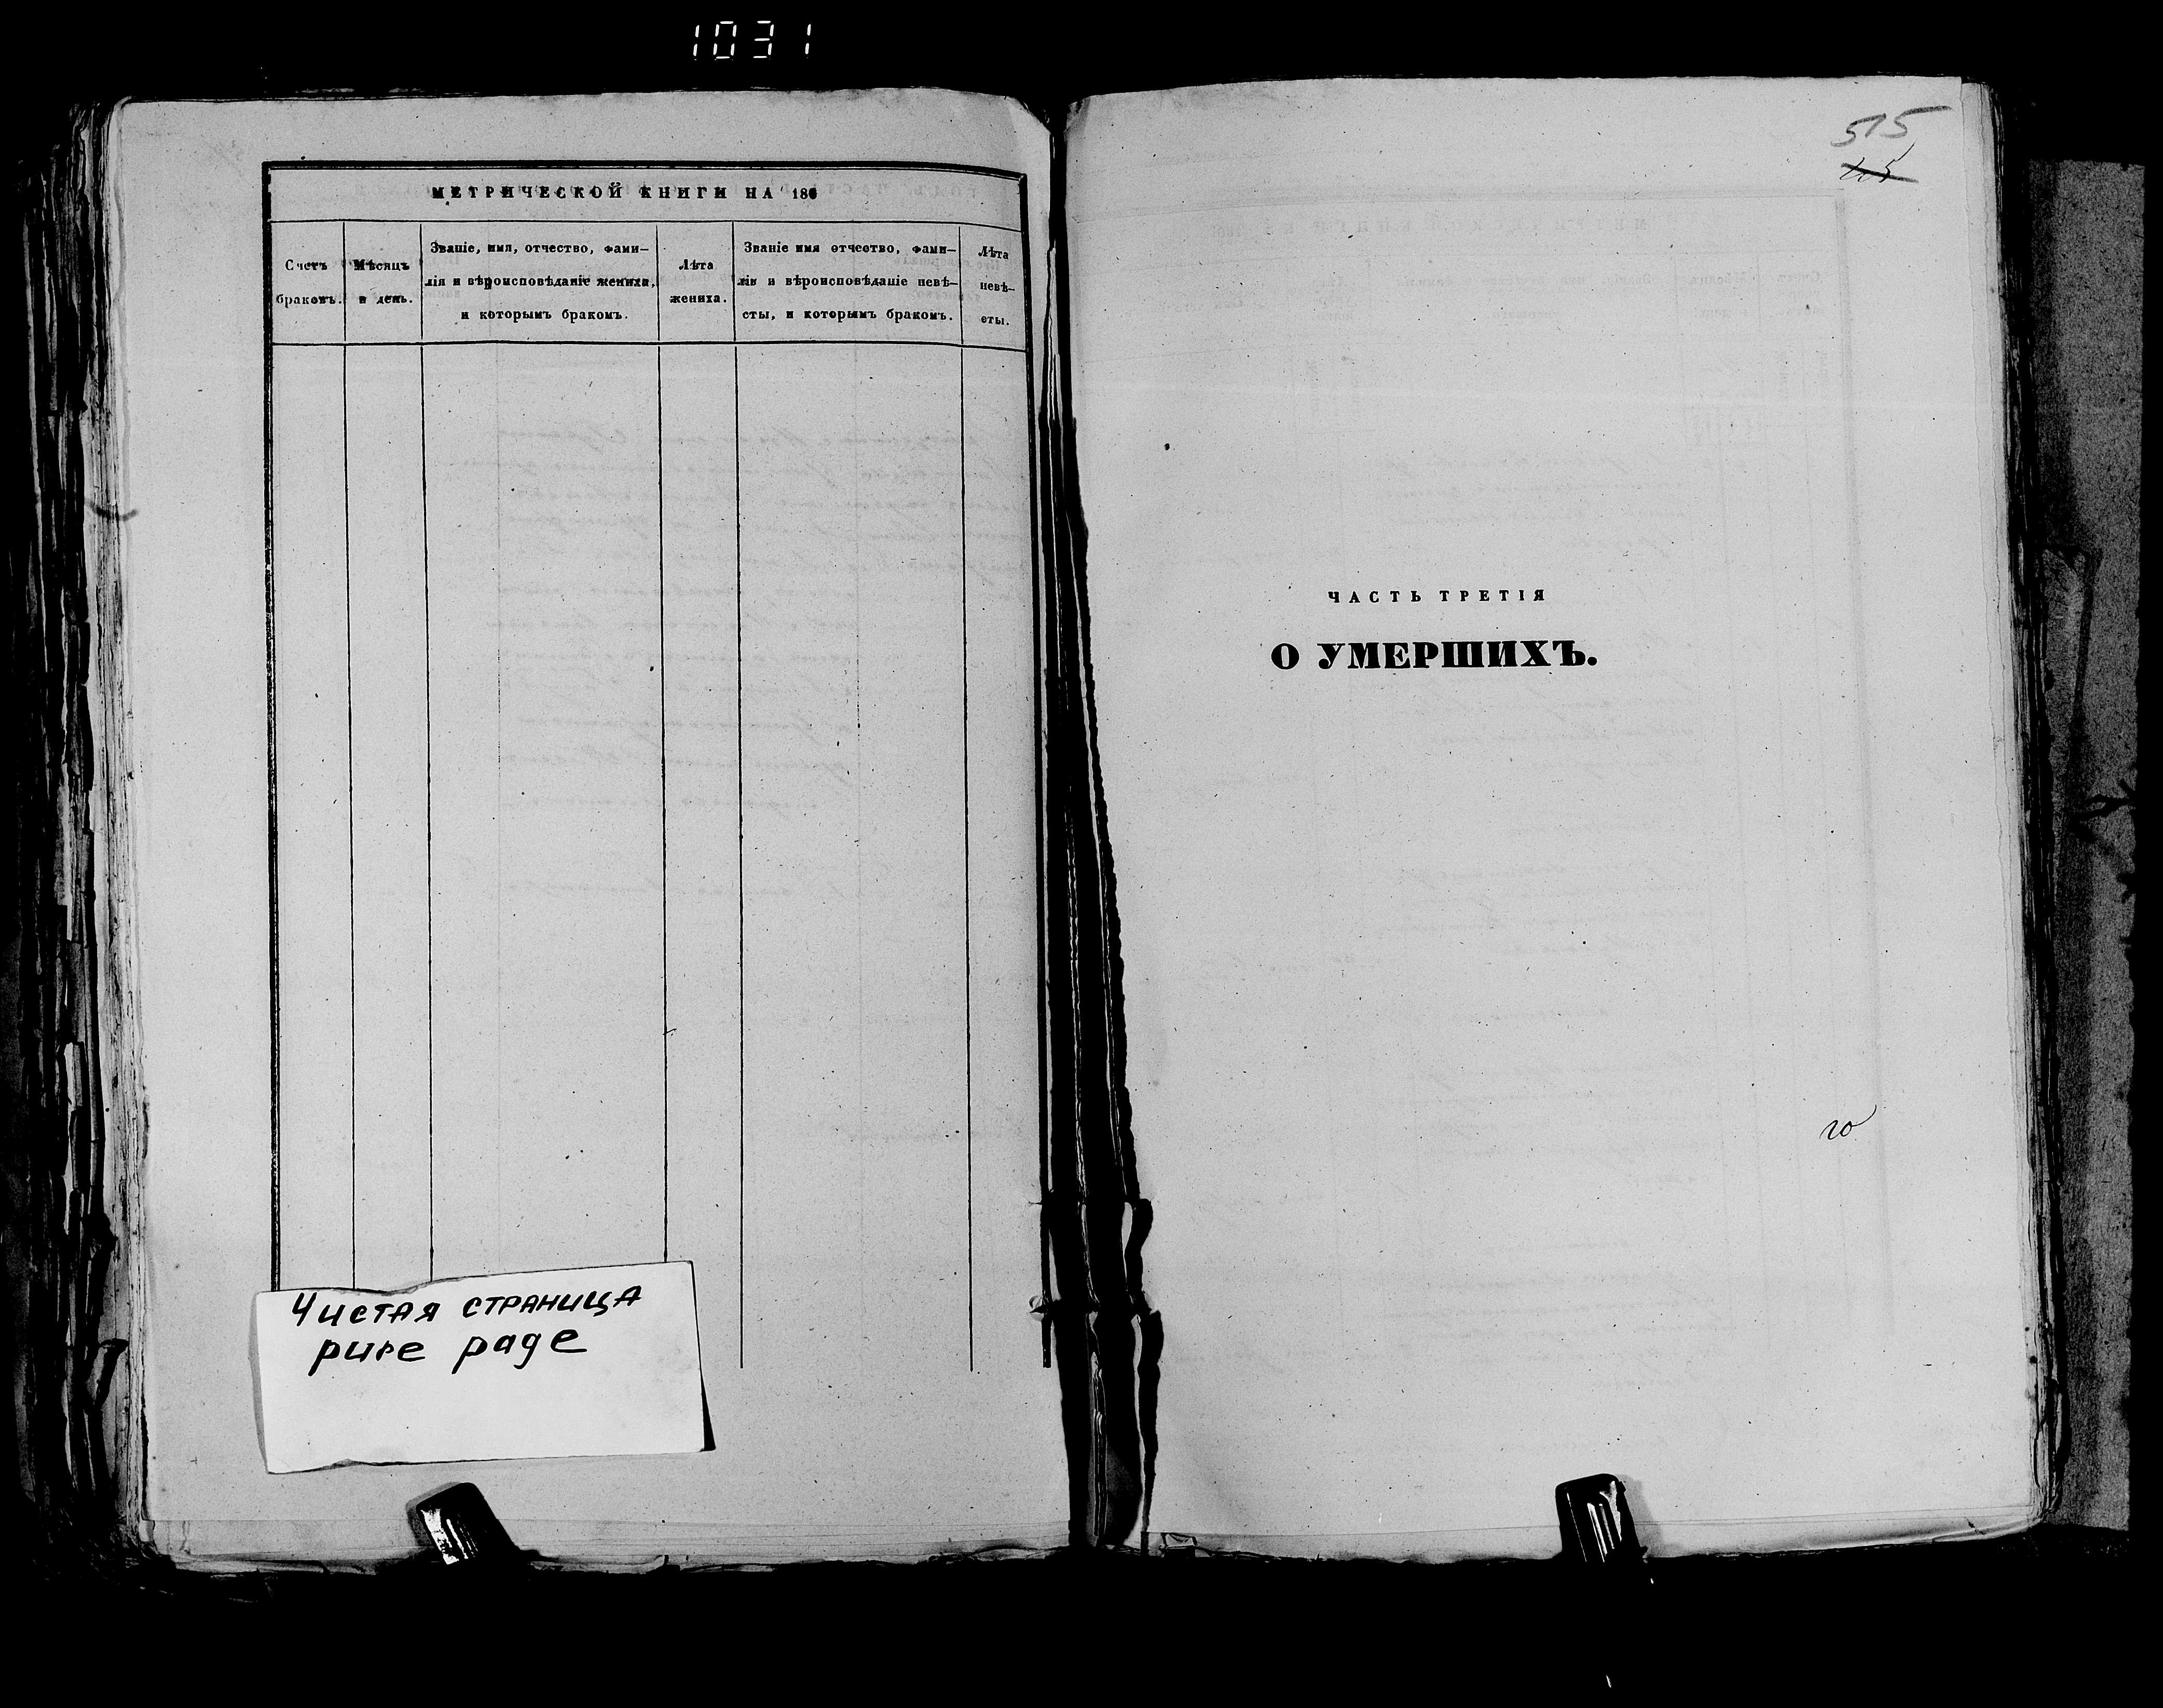 1031
МЕТРИЧЕСКОЙ КНИГИ НА 186
Счетъ
браковъ.
Мѣсяцъ
и день.
Званіе, имя, отчество, фами–
лія и вѣроисповѣданіе жениха,
и которымъ бракомъ.
Лѣта
жениха.
Званіе имя отчество, фами–
лія и вѣроисповѣданіе невѣ–
сты, и которымъ бракомъ.
Лѣта
невѣ–
сты.
Чистая страница
pure page
515
ЧАСТЬ ТРЕТІЯ
О УМЕРШИХЪ.